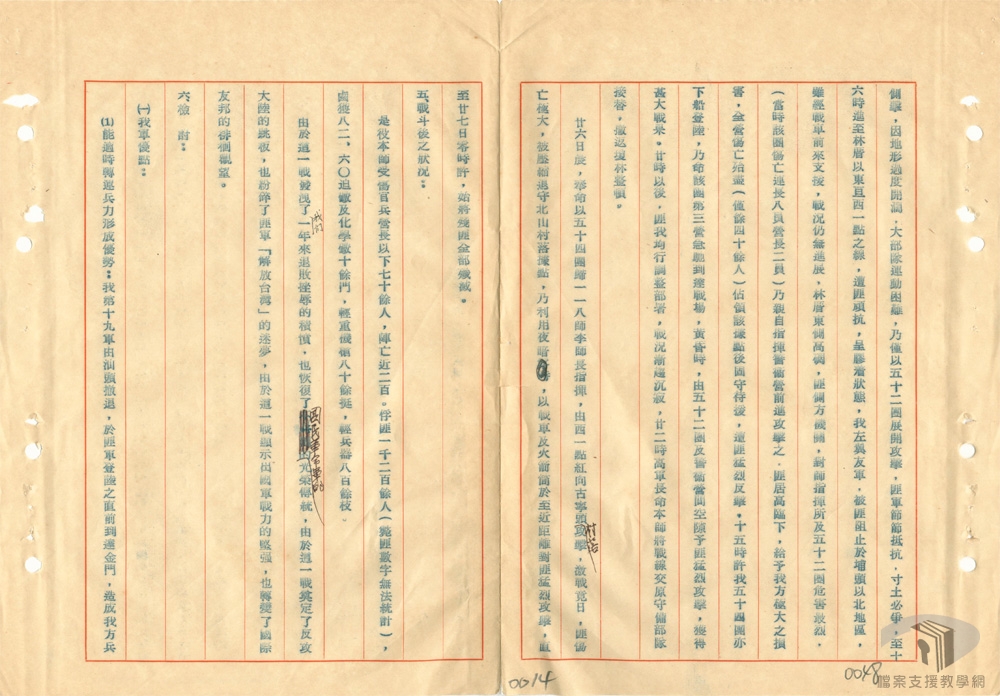 側擊，因地形過度開濶，大部隊運動困難，乃僅以五十二團展開攻擊，匪軍節節抵抗，寸土必爭，至十
六時進至林厝以東亘西一點之線，遭匪頑抗，呈膠着狀態，我左翼友軍，被匪阻止於埔頭以北地區，
雖經戰車前來支援，戰況仍無進展，林厝東側高磵，匪側方機關，對師指揮所及五十二團危害最烈，
（當時該團傷亡連長八員營長二員）乃親自指揮警衞營前進攻擊之，匪居高臨下，給予我方極大之損
害，全營傷亡殆盡（僅餘四十餘人）佔領該據點後固守待援，遭匪猛烈反擊。十五時許我五十四團亦
下船登陸，乃命該團第三營急馳到達戰場，黃昏時，由五十二團及警衞營間空隙予匪猛烈攻擊，獲得
甚大戰果。廿時以後，匪我均行調整部署，戰況漸趨沉寂，廿二時高軍長命本師將戰線交原守備部隊
接替，撤返後林整頓。
廿六日晨，奉命以五十四團歸一一八師李師長指揮，由西一點紅向古寧頭村落攻擊，激戰竟日，匪傷
亡極大，被壓縮退守北山村落據點，乃利用夜暗，以戰車及火箭筒於至近距離對匪猛烈攻擊，直
至廿七日零時許，始將殘匪全部殲滅。
五、戰斗後之狀況：
是役本師受傷官兵營長以下七十餘人，陣亡近二百。俘匪一千二百餘人（斃匪數字無法統計），
鹵獲八二、六〇迫擊及化學砲十餘門，輕重機槍八十餘挺，輕兵器八百餘枝。
由於這一戰雪洩了一年來退敗挫辱的積憤，也恢復了國民革命軍的光榮傳統，由於這一戰奠定了反攻
大陸的跳板，也粉碎了匪軍「解放台灣」的迷夢，由於這一戰顯示出國軍戰力的堅強，也轉變了國際
友邦的徘徊觀望。
六、檢討：
㈠我軍優點：
⑴能適時轉運兵力形成優勢：我第十九軍由汕頭撤退，於匪軍登陸之直前到達金門，造成我方兵
0014
0048
檔案支援教學網